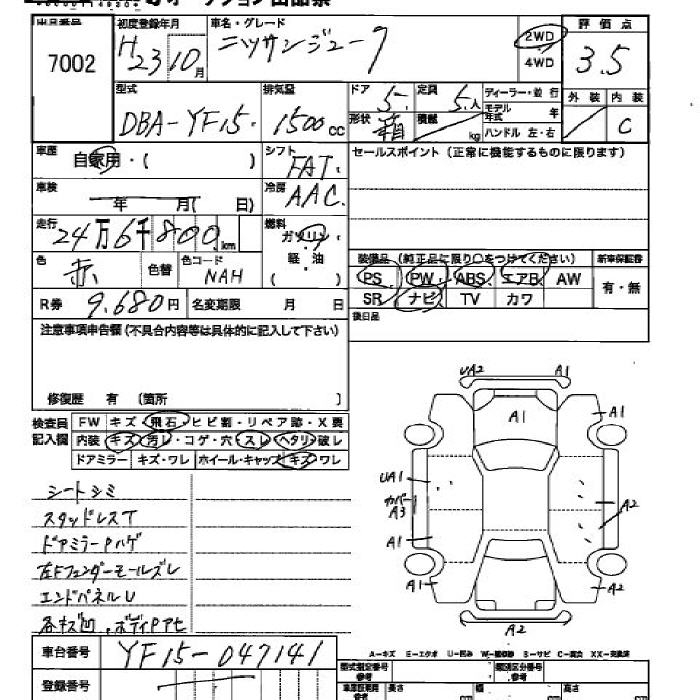 出品番号 初度登録年月 車名・グレード 2WD 4WD 評価点
7002 H23 10月 ニッサンジューク 3.5
型式 排気量 ドア 定員 ディーラー・並行 外装 内装
DBA-YF15. 1500cc 5. 5.人 モデル年式 年
形状 箱 積載 kg ハンドル 左・右 C
車歴 自家用・( ) シフト FAT. セールスポイント(正常に機能するものに限ります)
車検 年 月( 日) 冷房 AAC.
走行 24万6千800km 燃料 ガソリン・軽・油 ( )
色 赤 色替 色コード NAH
装備品(純正品に限り○をつけてください) 新車保証書
PS PW ABS エアB AW 有・無
SR ナビ TV カワ
R券 9.680円 名変期限 月 日 後日品
注意事項申告欄(不具合内容等は具体的に記入して下さい)
修復歴 有(箇所 )
検査員記入欄 FW キズ・飛石・ヒビ割・リペア跡・X要
内装 キズ・汚レ・コゲ・穴・スレ・ヘタリ・破レ
ドアミラー キズ・ワレ ホイール・キャップ キズ・ワレ
シートシミ
スタッドレスT
ドアミラーPハゲ
左Fフェンダーモールズレ
エンドパネルU
各キズ凹、ボディPアセ
UA2 A1
A1 A1
UA1
カバーA3 A2
A1
A1 A2
A2
A=キズ E=エクボ U=凹み W=補修跡 S=サビ C=腐食 XX=交換済
車台番号 YF15-047141
登録番号
型式指定番号 類別区分番号
長さ 幅 高さ